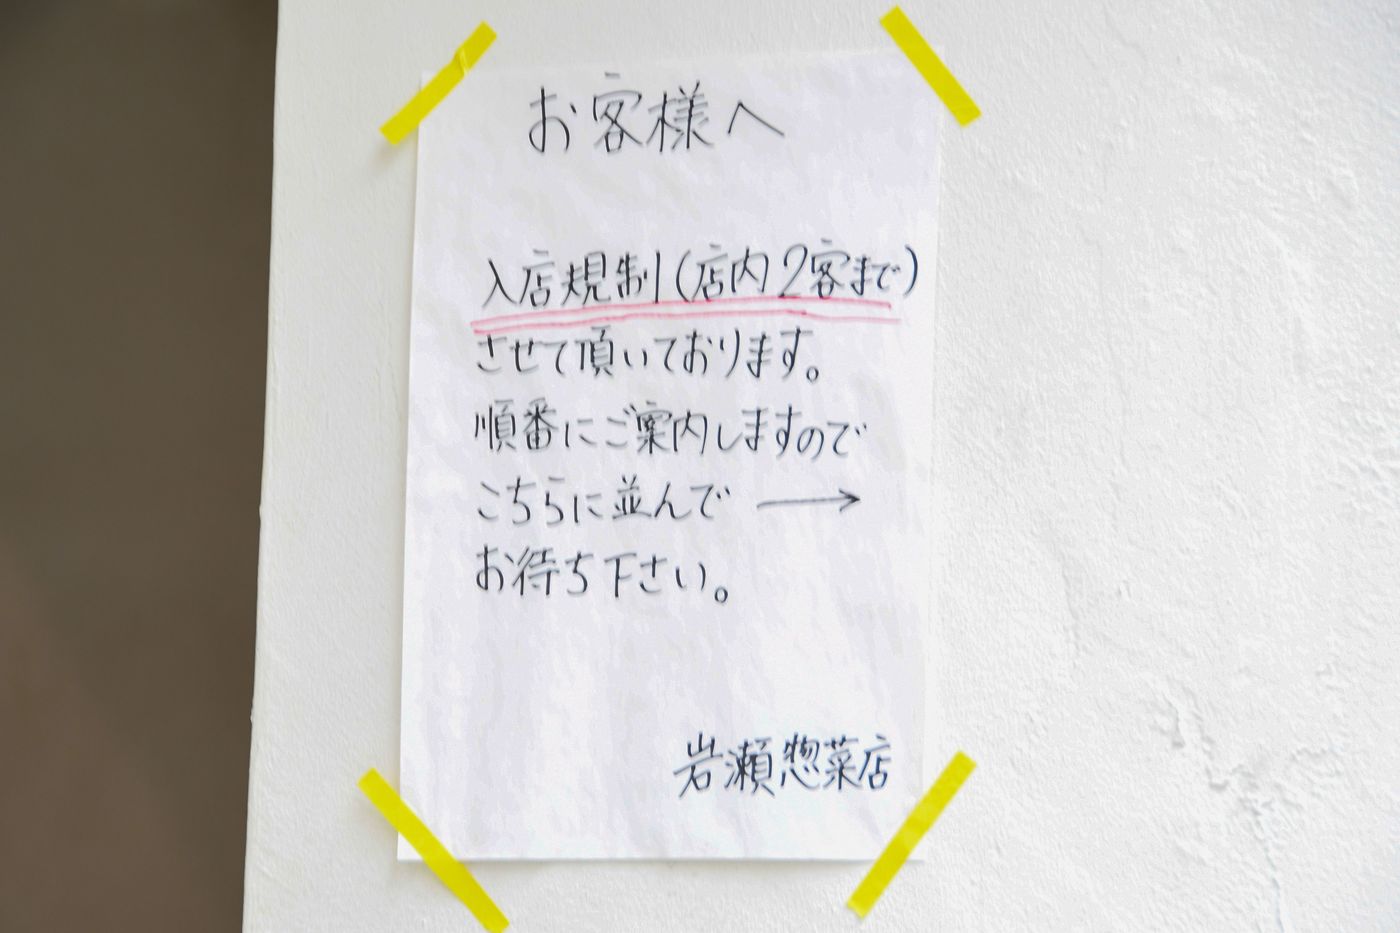 お客様へ
入店規制(店内2客まで)
させて頂いております。
順番にご案内しますので
こちらに並んで →
お待ち下さい。
岩瀬惣菜店